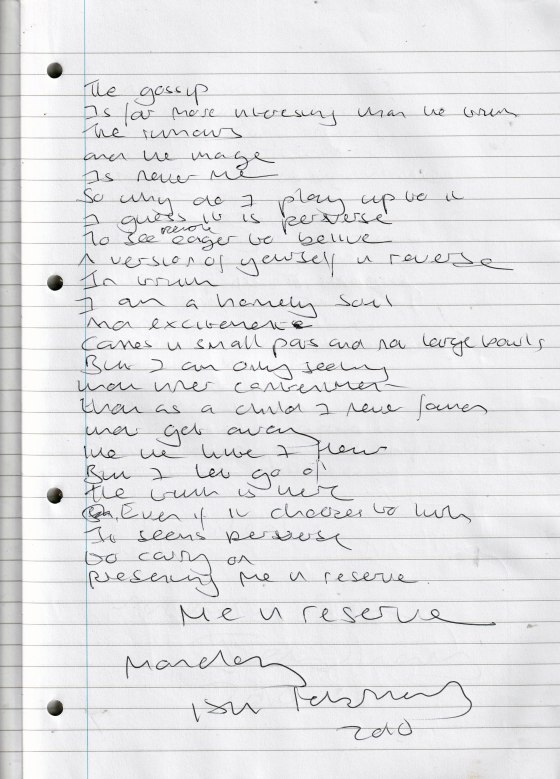 The gossip
Is far more interesting than the truth
The rumours
and the image
Is never me
So why do I play up to it
I guess it is perverse
To see people eager to believe
A version of yourself in reverse
In truth
I am a homely soul
that excitement
Comes in small pots and not large bowls
But I am only seeking
that inner contentment
that as a child I never
that got away
like the I
But I let go of
the truth is here
Even if it chooses to
It seems perverse
to carry on
presenting me in reserve.
Me in reserve
Monday
2010